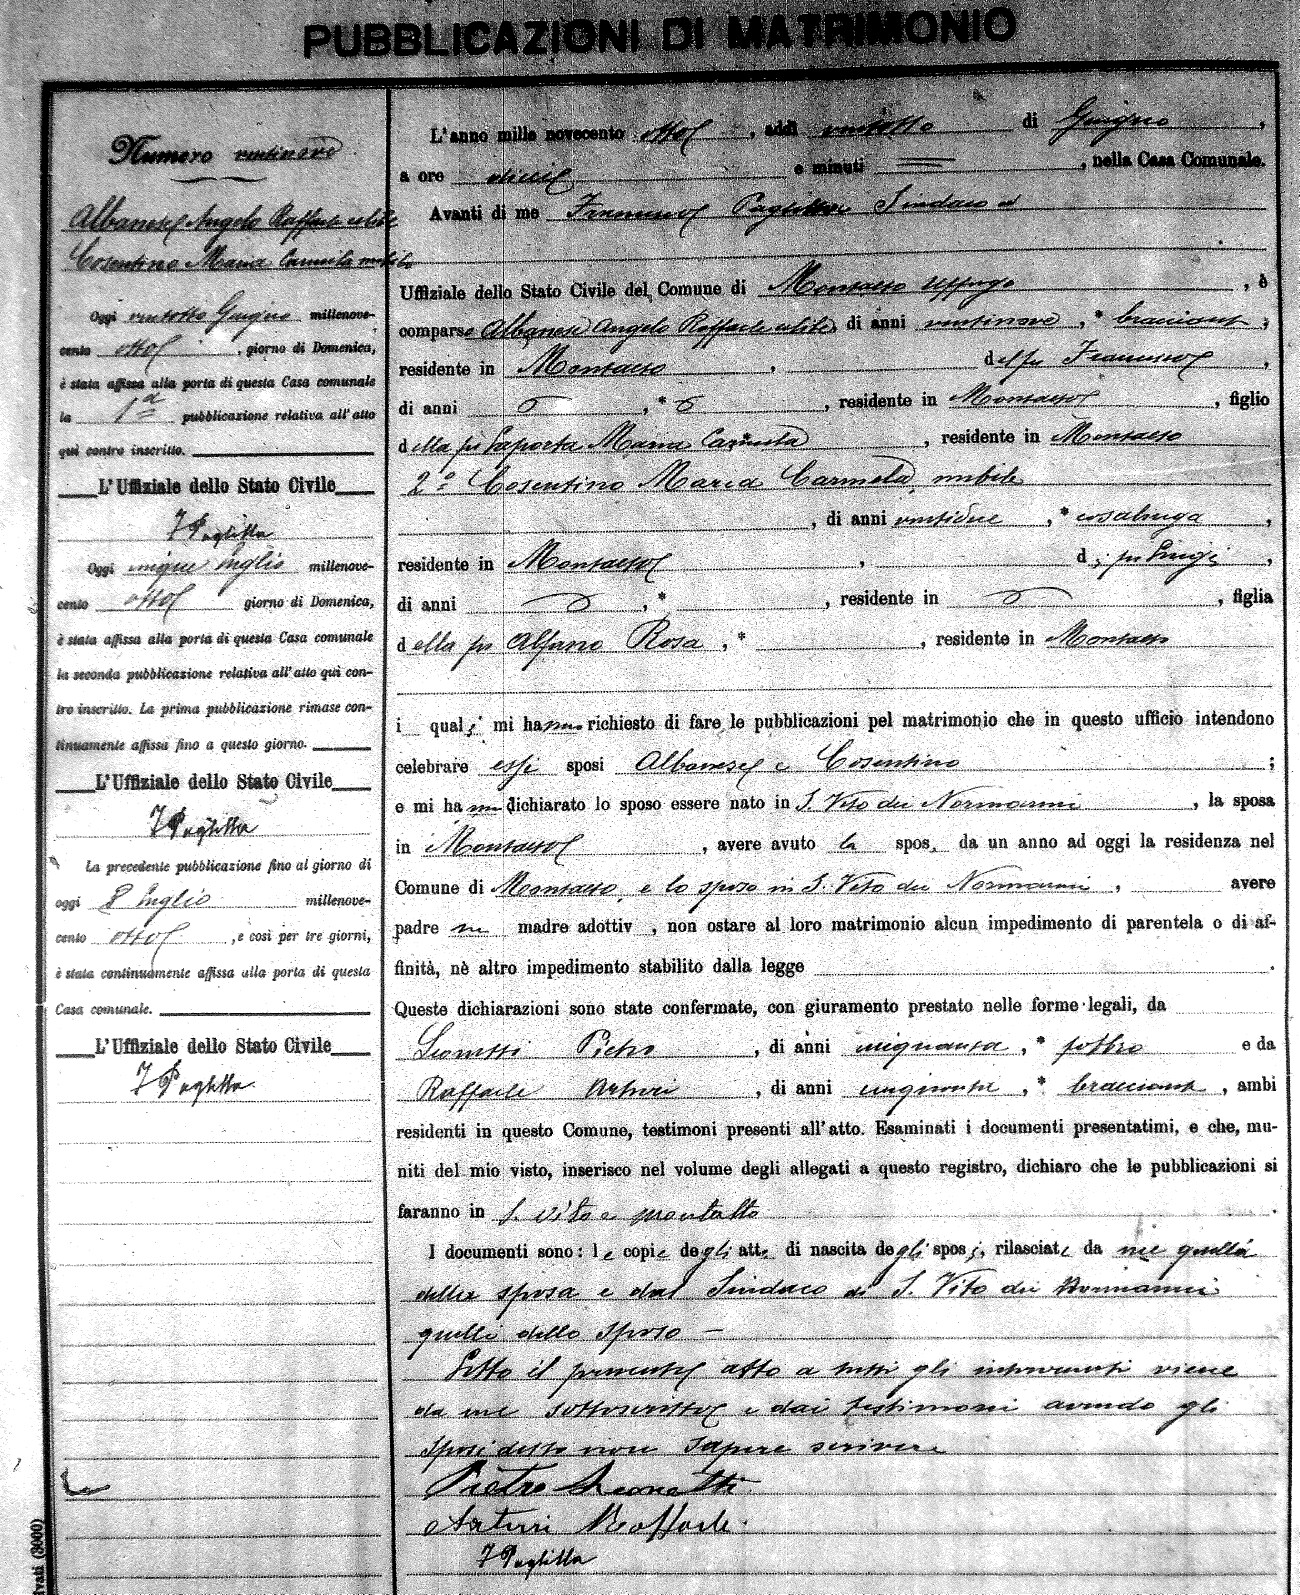 PUBBLICAZIONI DI MATRIMONIO
Numero ventinove
Albanese Angelo Raffaele celibe
Cosentino Maria Carmela nubile
Oggi ventotto Giugno millenove-
cento otto, giorno di Domenica,
è stata affissa alla porta di questa Casa comunale
la 1ª pubblicazione relativa all'atto
qui contro inscritto.
L'Uffiziale dello Stato Civile
F Paglilla
Oggi cinque Luglio millenove-
cento otto giorno di Domenica,
è stata affissa alla porta di questa Casa comunale
la seconda pubblicazione relativa all'atto quì con-
tro inscritto. La prima pubblicazione rimase con-
tinuamente affissa fino a questo giorno.
L'Uffiziale dello Stato Civile
F Paglilla
La precedente pubblicazione fino al giorno di
oggi 8 Luglio millenove-
cento otto, e così per tre giorni,
è stata continuamente affissa alla porta di questa
Casa comunale.
L'Uffiziale dello Stato Civile
F Paglilla
L'anno mille novecento otto, addì ventotto di Giugno,
a ore dieci e minuti =, nella Casa Comunale.
Avanti di me Francesco Paglilla Sindaco ed
Uffiziale dello Stato Civile del Comune di Montalto Uffugo, è
comparso Albanese Angelo Raffaele celibe di anni ventinove, * bracciante,
residente in Montalto, del fu Francesco,
di anni, *, residente in Montalto, figlio
della fu Laporta Maria Carmela, residente in Montalto
2° Cosentino Maria Carmela, nubile
, di anni ventidue, * casalinga,
residente in Montalto, di fu Luigi,
di anni, *, residente in, figlia
della fu Alfano Rosa, *, residente in Montalto
i quali mi hanno richiesto di fare le pubblicazioni pel matrimonio che in questo ufficio intendono
celebrare essi sposi Albanese e Cosentino;
e mi hanno dichiarato lo sposo essere nato in S. Vito dei Normanni, la sposa
in Montalto, avere avuto la spos, da un anno ad oggi la residenza nel
Comune di Montalto, e lo sposo in S. Vito dei Normanni, avere
padre ne madre adottiv, non ostare al loro matrimonio alcun impedimento di parentela o di af-
finità, nè altro impedimento stabilito dalla legge.
Queste dichiarazioni sono state confermate, con giuramento prestato nelle forme legali, da
Leonetti Pietro, di anni cinquanta, * e da
Raffaele Arturi, di anni, * bracciante, ambi
residenti in questo Comune, testimoni presenti all'atto. Esaminati i documenti presentatimi, e che, mu-
niti del mio visto, inserisco nel volume degli allegati a questo registro, dichiaro che le pubblicazioni si
faranno in S. Vito e Montalto.
I documenti sono: le copie degli atti di nascita degli sposi, rilasciate da me quella
della sposa e dal Sindaco di S. Vito dei Normanni
quelle dello sposo —
Letto il presente atto a tutti gli intervenuti viene
da me sottoscritto e dai testimoni avendo gli
sposi detto non sapere scrivere
Pietro Leonetti
Arturi Raffaele
F Paglilla
ivati (3000)